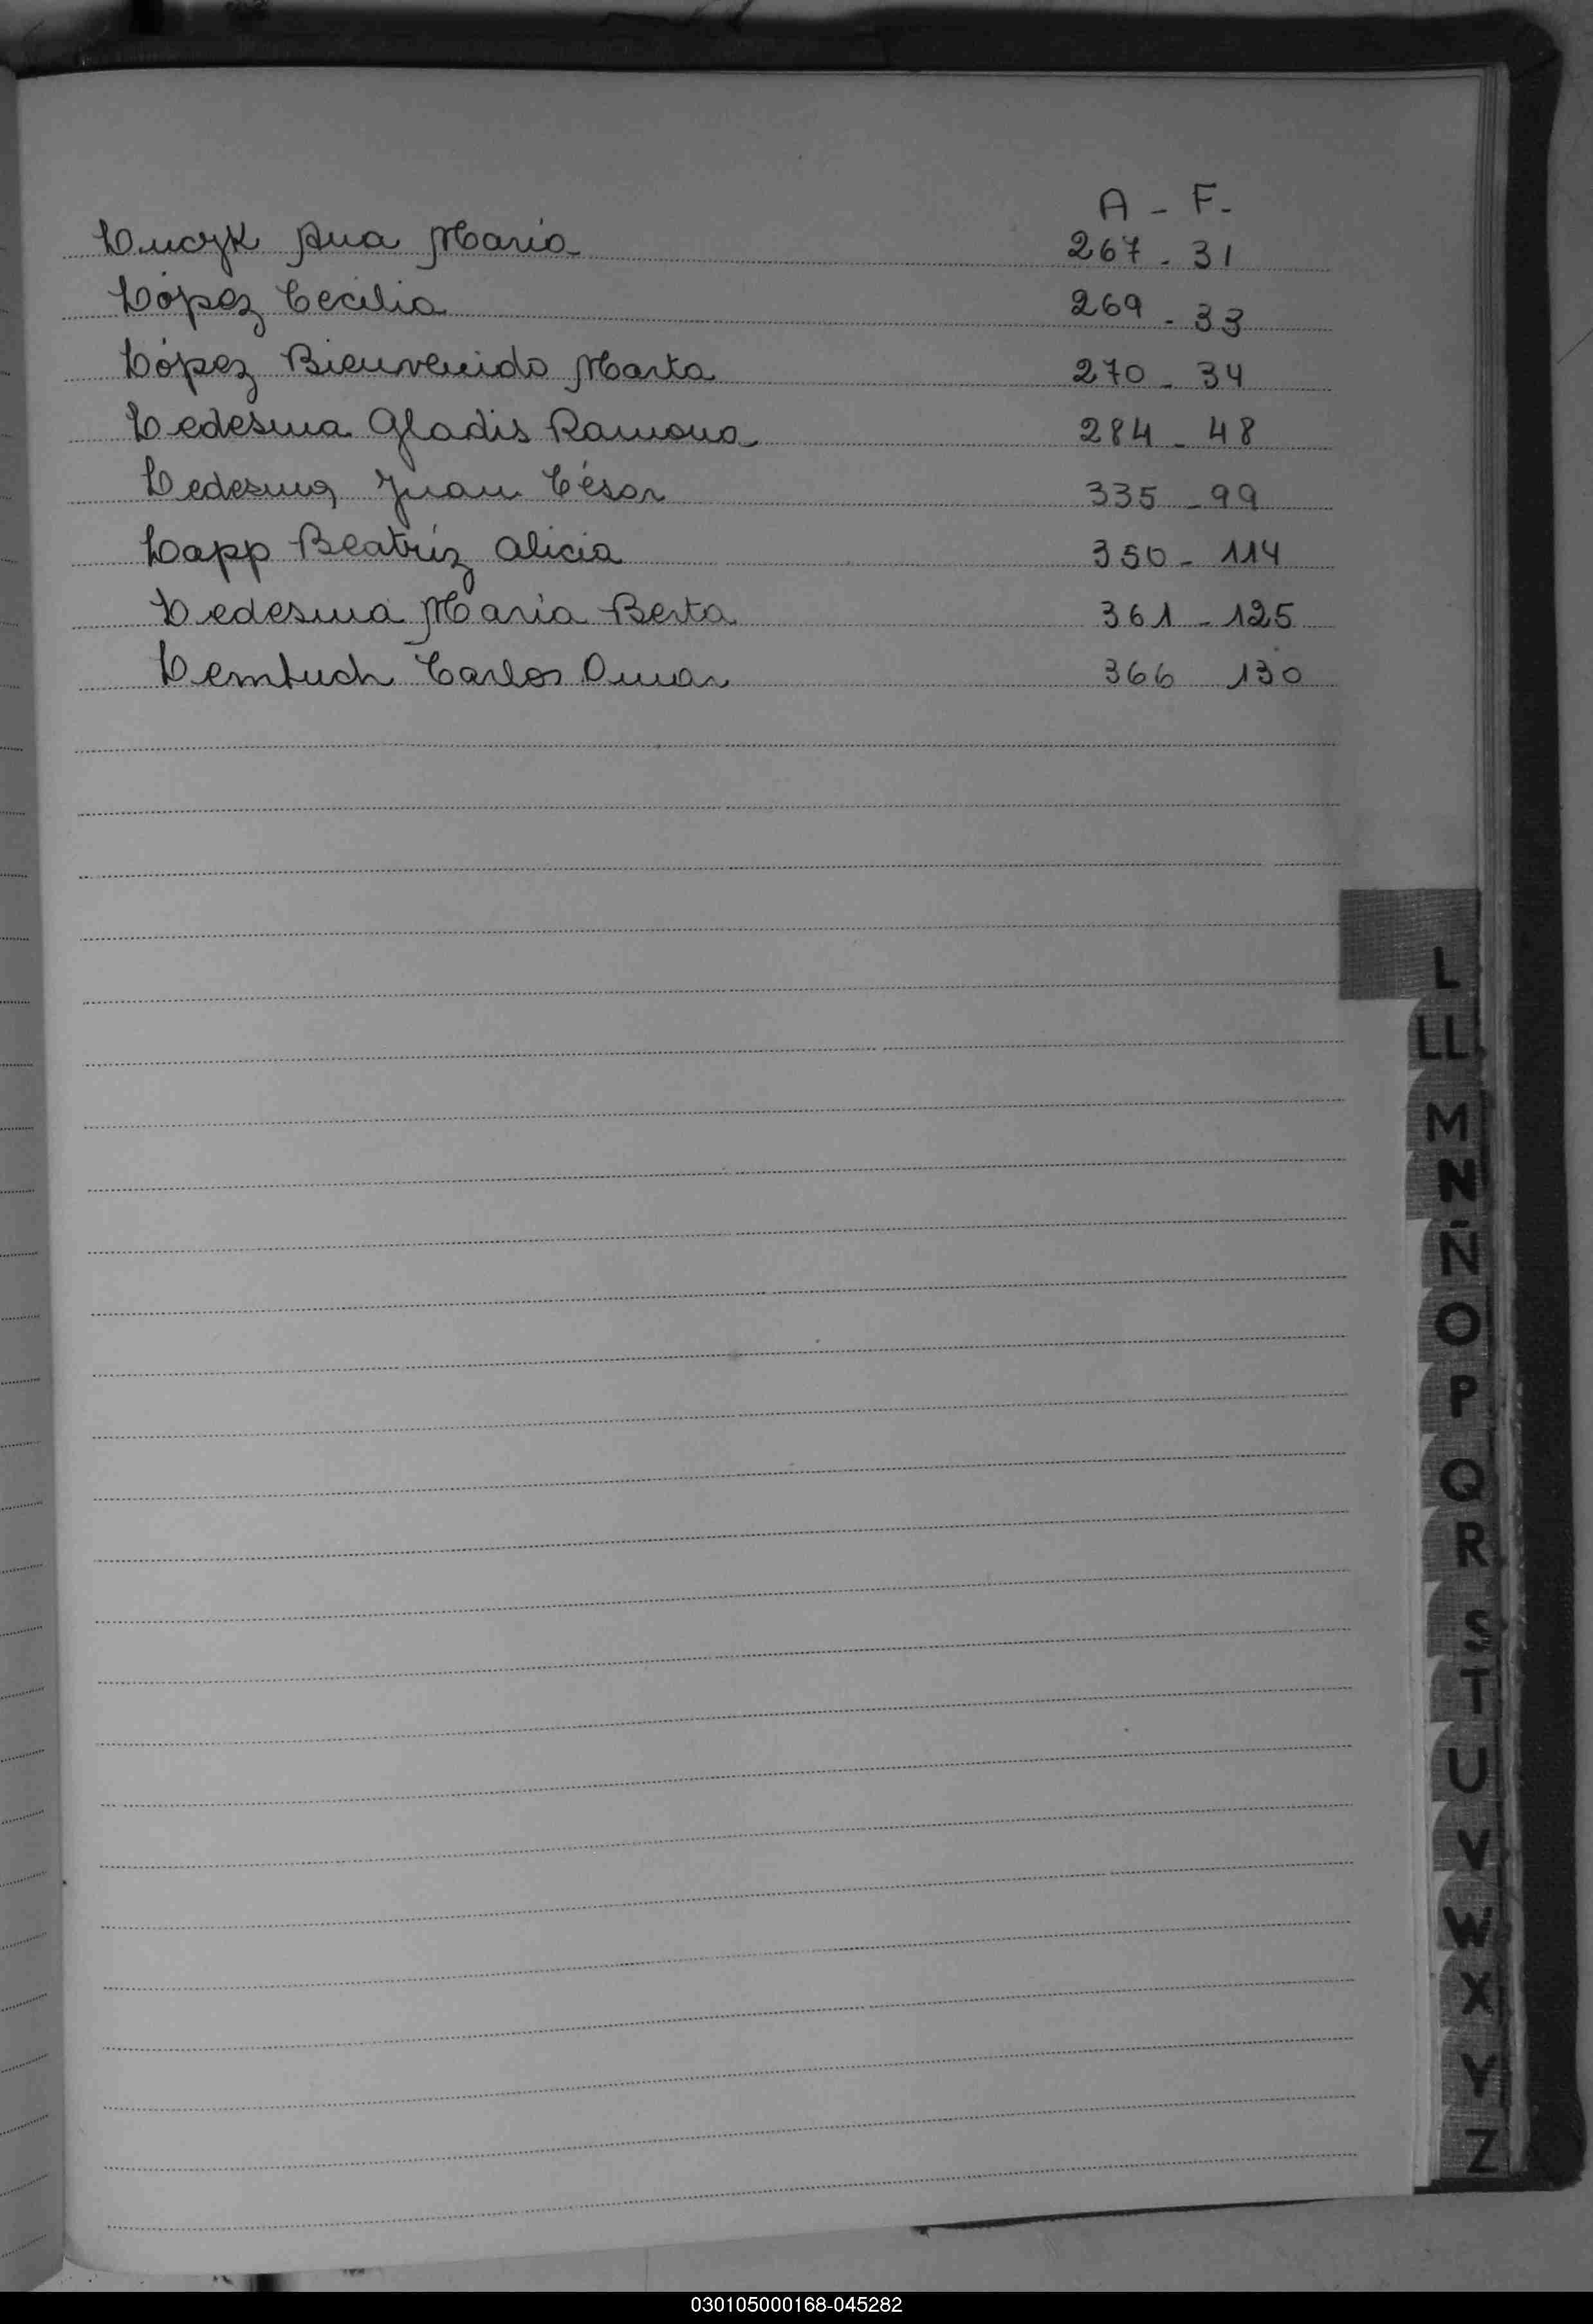 A - F.
Lucyk Ana María 267 - 31
López Cecilia 269 - 33
López Bienvenido Marta 270 - 34
Ledesma Gladis Ramona 284 - 48
Ledesma, Juan César 335 - 99
Lapp Beatríz Alicia 350 - 114
Ledesma María Berta 361 - 125
Lembuch Carlos Omar 366 130
L
LL
M
N
Ñ
O
P
Q
R
S
T
U
V
W
X
Y
Z
030105000168-045282